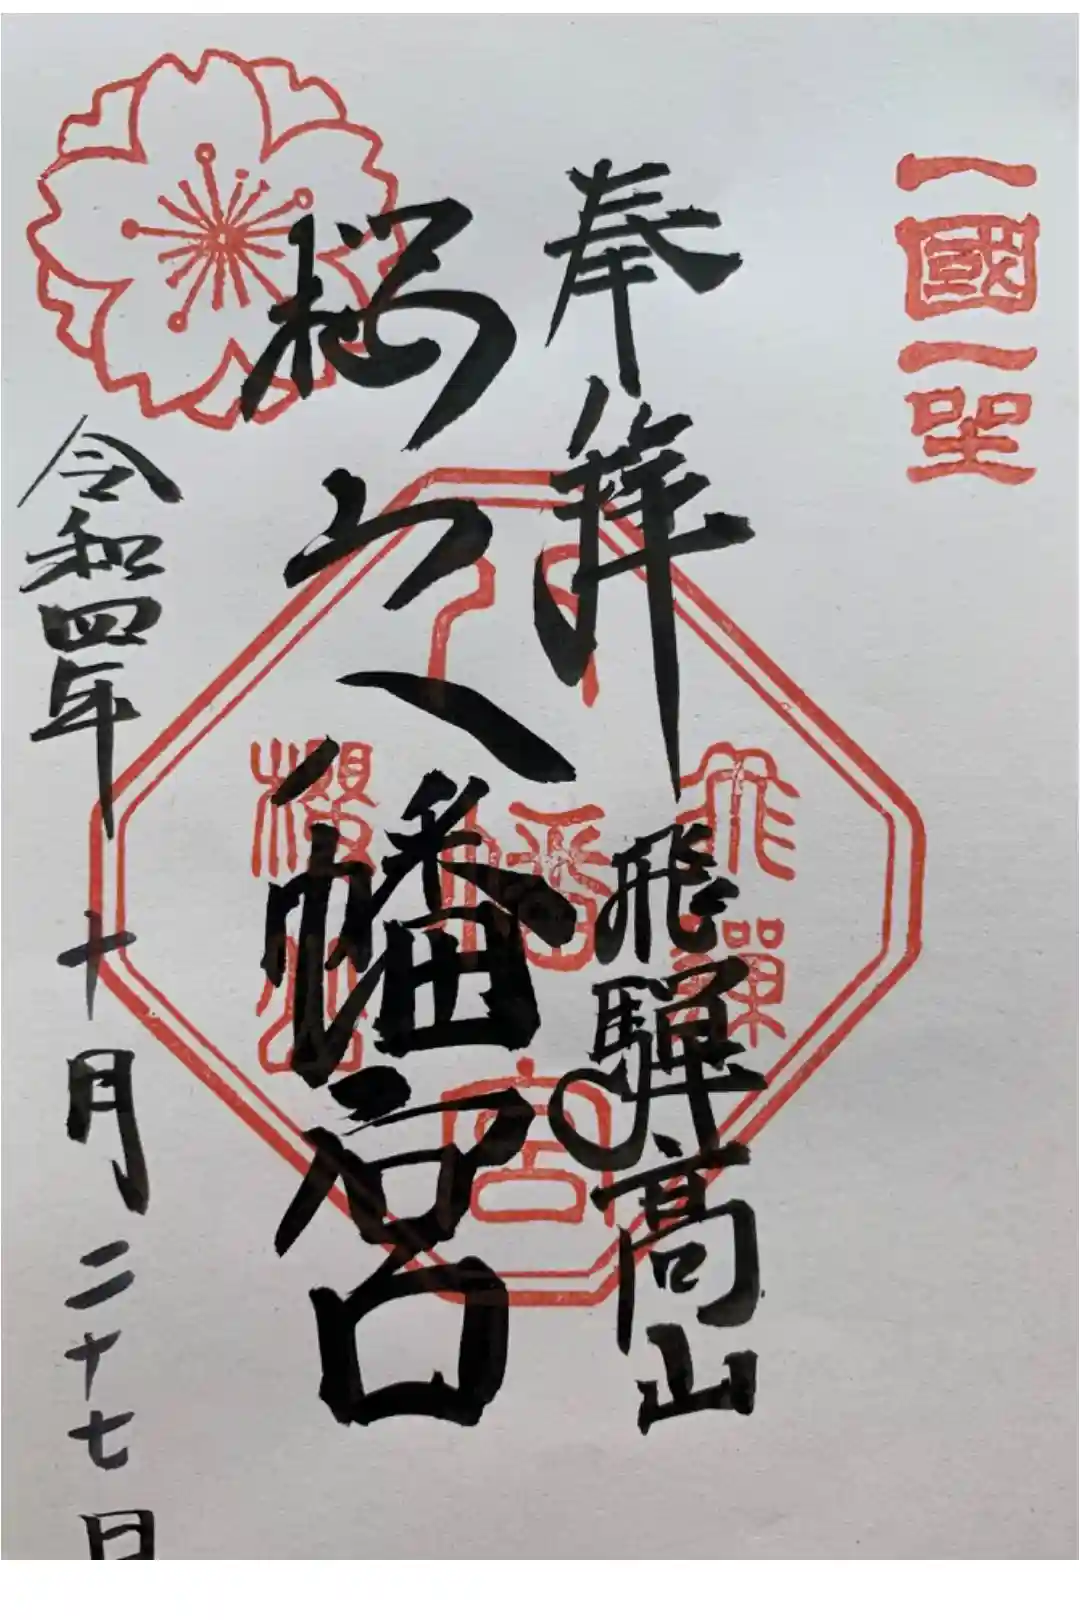 一國一聖
奉拝
飛騨高山
桜山八幡宮
飛騨
八幡宮
櫻山
令和四年十月二十七日